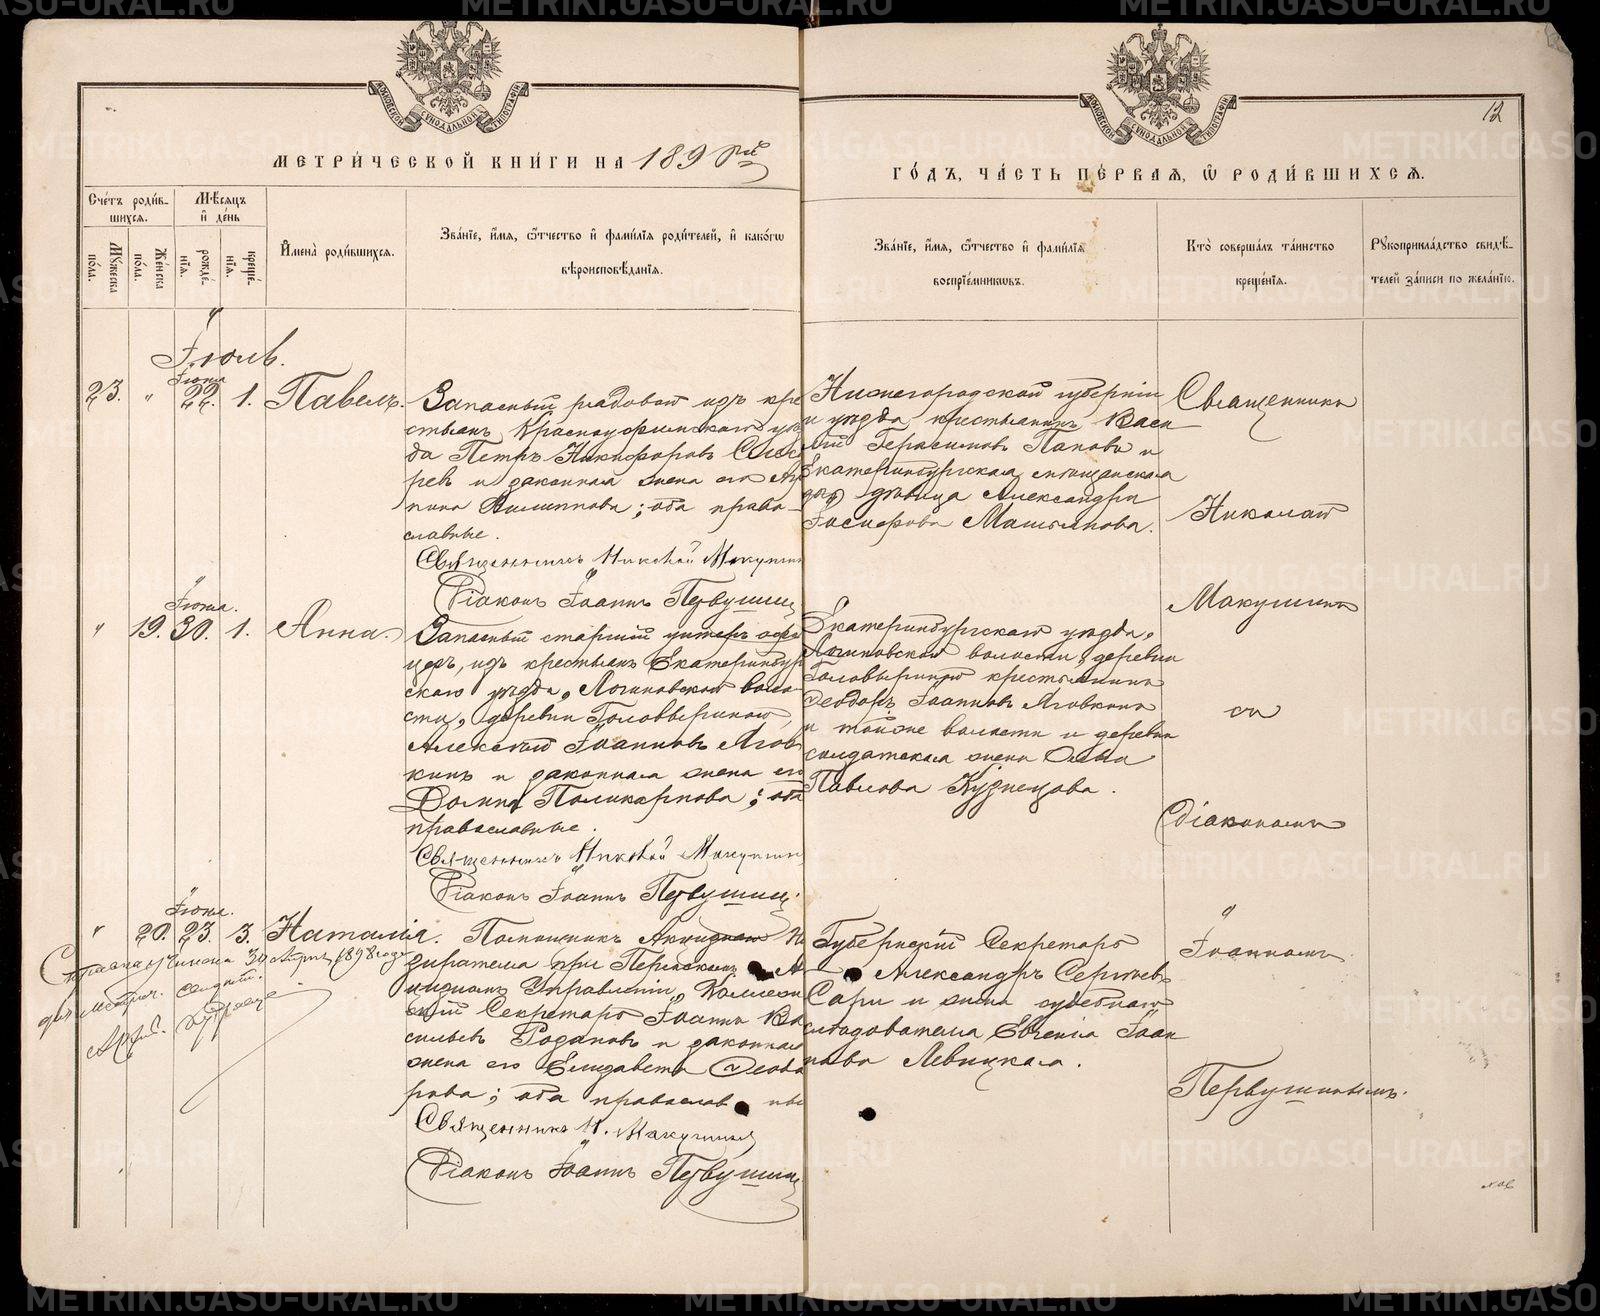 МЕТРИ́ЧЕСКОЙ КНИ́ГИ НА 189
ГО́ДЪ, ЧА́СТЬ ПЕ́РВАЯ, Ѿ РОДИ́ВШИХСЯ.
12
Сче́тъ роди́в-
шихся.
Му́жеска
по́ла.
Же́нска
по́ла.
Мѣ́сяцъ
и҆ де́нь
рожде́-
нїя.
креще́-
нїя.
И҆мена̀ роди́вшихся.
Зва́нїе, и҆́мя, ѻ҆́тчество и҆ фами́лїя роди́телей, и҆ како́гѡ
вѣроисповѣ́данїя.
Зва́нїе, и҆́мя, ѻ҆́тчество и҆ фами́лїя
воспрїе́мникѡвъ.
Кто̀ соверша́лъ та́инство
креще́нїя.
Рꙋкоприкла́дство свидѣ́-
телей за́писи по жела́нїю.
Іюль.
Іюня
23. " 22. 1. Павелъ.
Запасный рядовой изъ кре
стьянъ Красноуфимскаго уѣз
да Петръ Никифоровъ
и законная жена его
Филиппова; оба право-
славные.
Священникъ Николай Макушин
Діаконъ Іоаннъ Первушин
Нижегородской губерніи
и уѣзда крестьянинъ Васи
лій Герасимовъ Пановъ и
Екатеринбургская мѣщанская
дѣвица Александра
Іосифова
Священникъ
Николай
Макушинъ
съ
Діакономъ
Іоанномъ
Первушинымъ.
Іюня.
" 19. 30. 1. Анна.
Запасный старшій унтеръ офи
церъ, изъ крестьянъ Екатеринбур
скаго уѣзда, Логиновской воло-
сти, деревни Головыриной,
Алексій Іоанновъ Ягов
кинъ и законная жена его
Домна Поликарпова; оба
православные.
Священникъ Николай Макушин
Діаконъ Іоаннъ Первушин
Екатеринбургскаго уѣзда,
Логиновской волости, деревни
Головыриной крестьянинъ
Ѳеодоръ Іоанновъ Яговкинъ
и тойже волости и деревни
солдатская жена Анна
Павлова Кузнецова.
Іюня.
" 20. 23. 3. Наталія.
Помощникъ Акцизнаго На
дзирателя при Пермскомъ А
кцизномъ Управленіи, Коллеж
скій Секретарь Іоаннъ Ва
сильевъ и законная
жена его Елизавета Ѳеодо
рова; оба православные
Священникъ Н. Макушинъ
Діаконъ Іоаннъ Первушин
Губернскій Секретарь
Александръ Сергѣевъ
Сари и жена судебнаго
слѣдователя Евгенія Іоан
нова Левицкая.
1898 года
METRIKI.GASO-URAL.RU